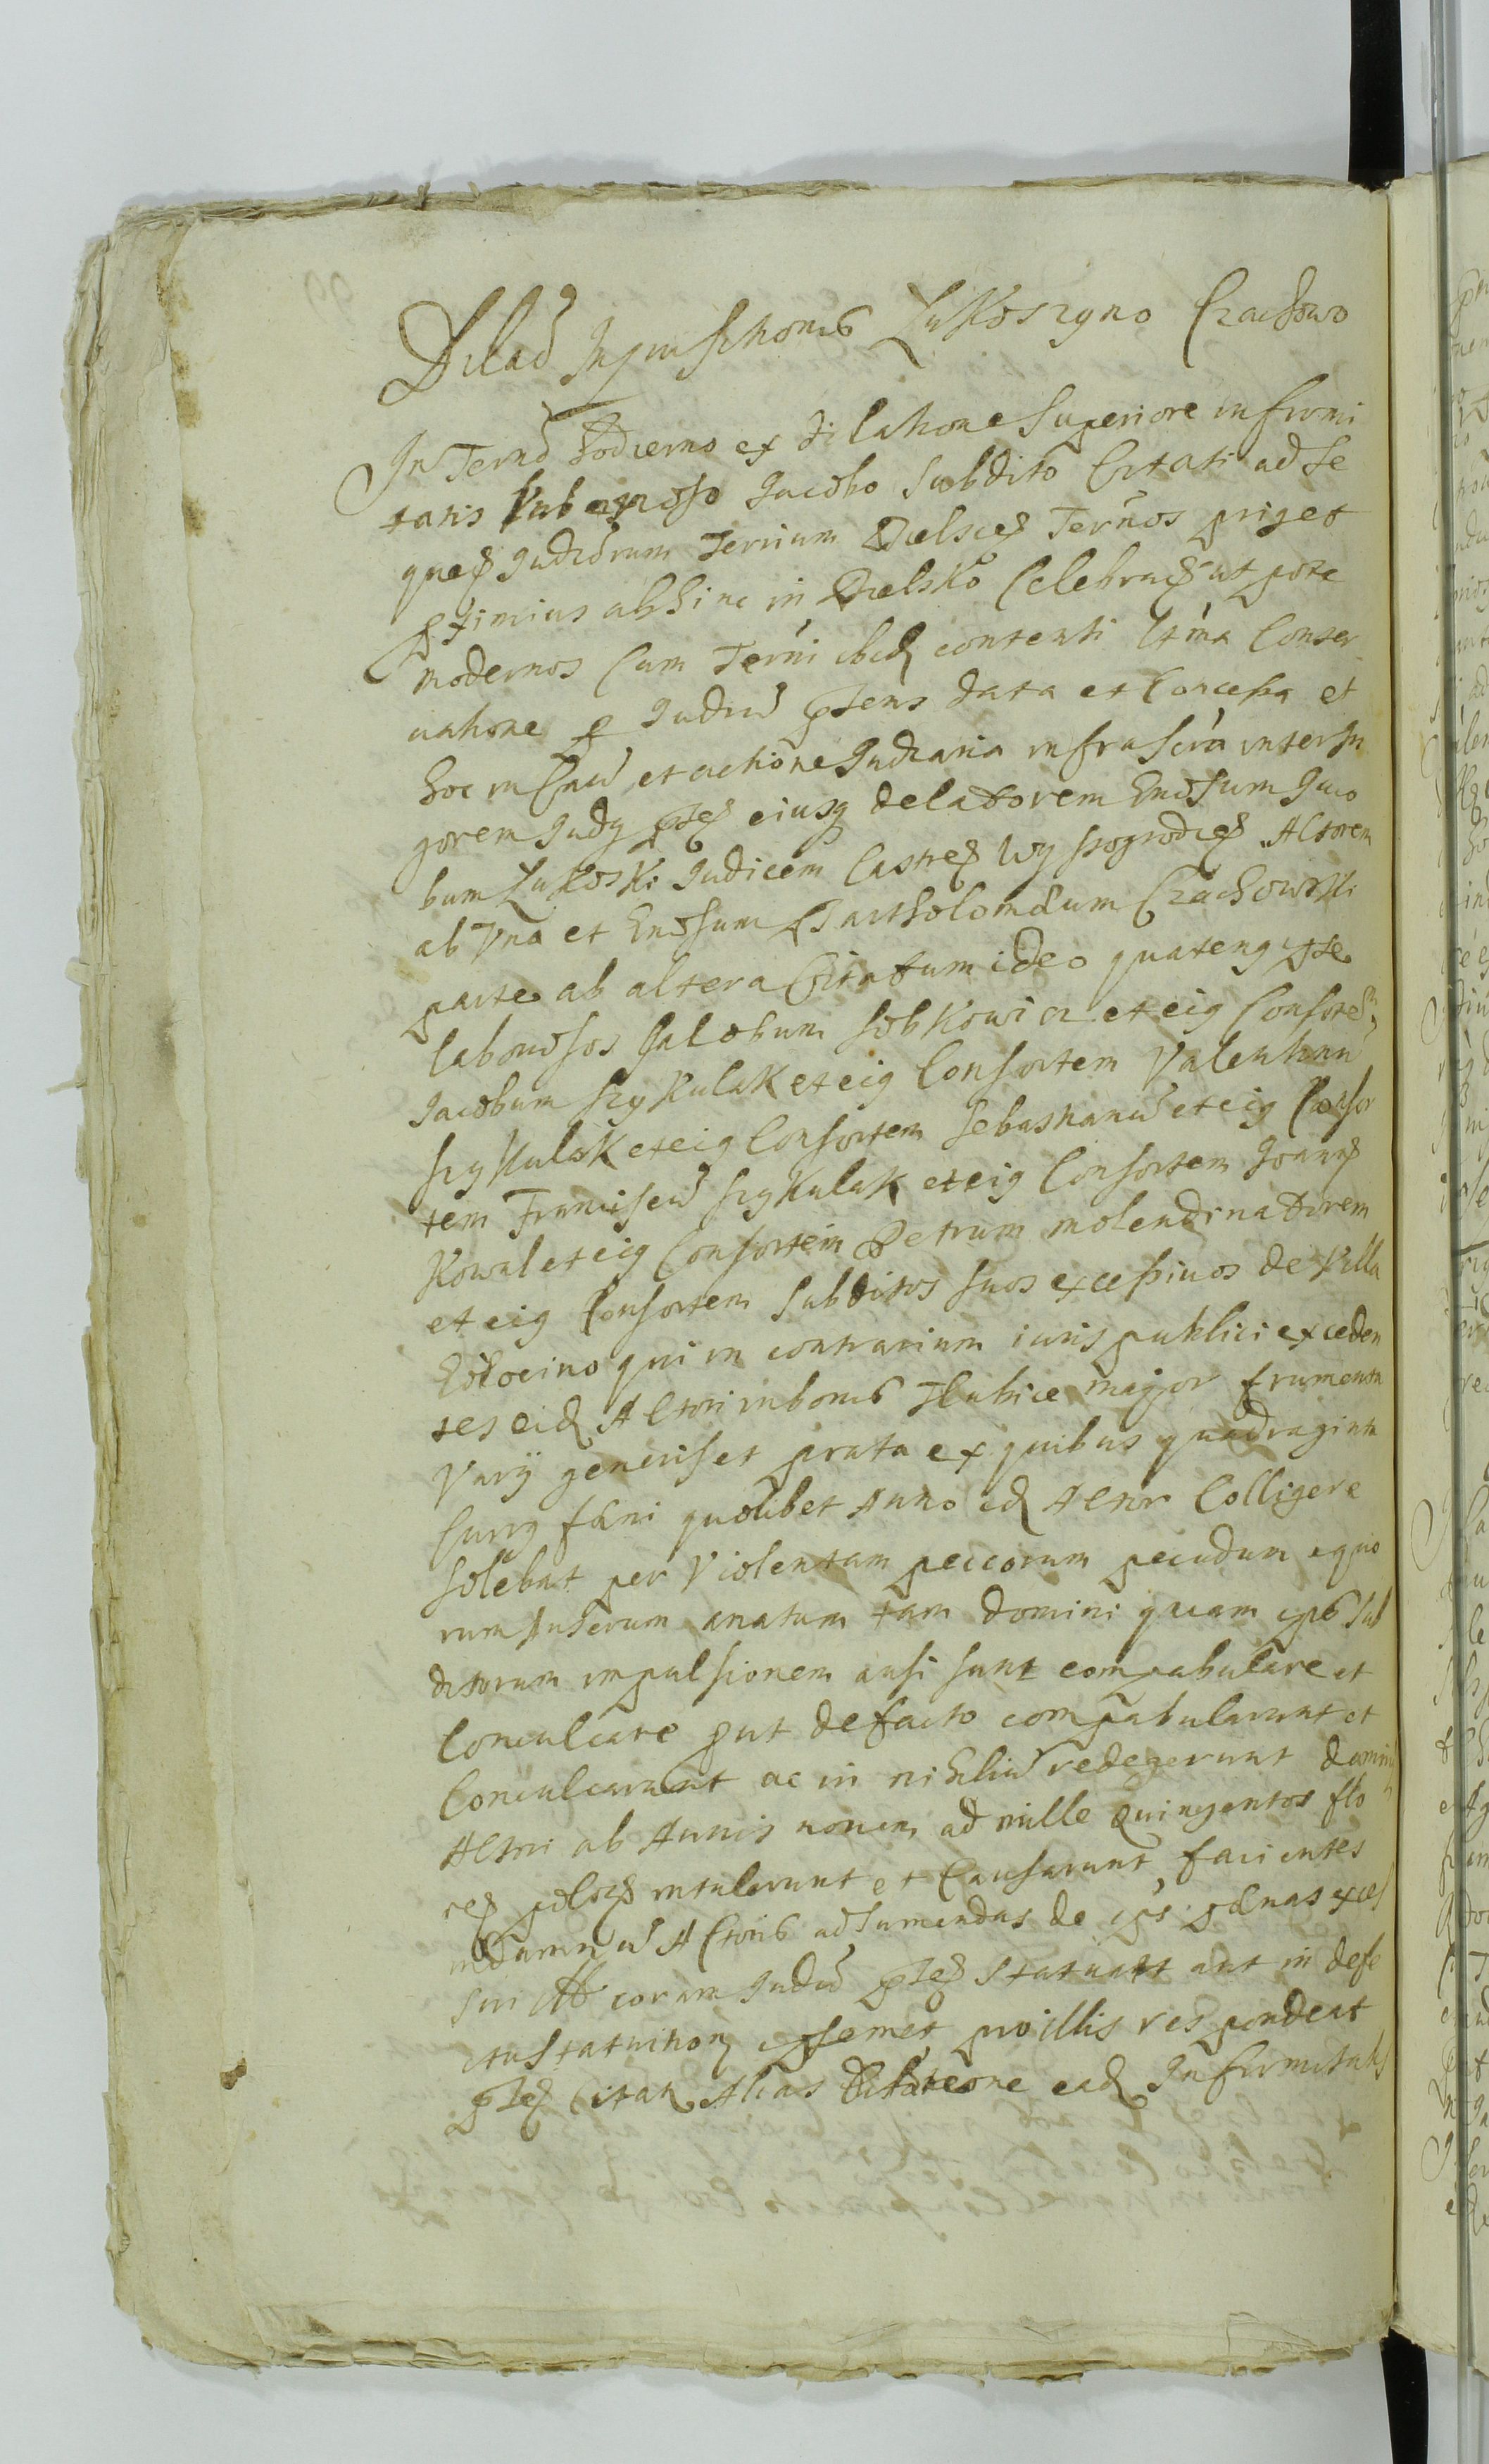 Dilao Inquisitionis Lukoszyno Czachowo
In Termo hodierno ex dilatione superiore infirmi
tatis Jacobo Subdito Citati ad Se
quen Judiciorum Terrium Bielscen Ternos
proximius abhinc in Bielsko Celebran ut pote
modernos Cum Terni ibid contenti Conser
uatione p Judiu pntens data et Concessa et
hoc in et actione Judiaria infrascra inter
gorem Judy pnte eiusq delatorem Gnosum Jaco
bum Lukoski Judicem Castren Wyszogrodien Actorem
ab Vna et Gnosum Bartholomaeum Czachowski
parte ab altera Citatum ideo quateng iste
laboriosos Jacobum Sobkowicz et eig Consorte
Jacobum Szykulak et eig Consortem Valentinu
Szykulak et eig Consortem Sebastianu et eig Consor
tem Franciscu Szykulak et eig Consortem Joannem
Kowal et eig Consortem Petrum molendinatorem
et eig Consortem Subditos suos excessiuos de Villa
qui in contrarium iuris publici exceden
tes eid Actori in bonis major frumenta
Varij generis et prata ex quibus quadraginta
Curry faeni quolibet Anno id Actor Colligere
solebat per Violentam peccorum pecudum equo
rum Anserum anatum tam domini quam ipso Sub
ditorum impulsionem ausi sunt compabulare et
Conculcare put de facto compabularunt et
Conculcarunt ac in nihiliu redegerunt damni
Actori ab Annis nouem ad mille Quingentos flo
ren polon intulerunt et Causarunt, facientes
in damnu Actoris ad sumendas de ips paenas exces
sui coram Judiu pnte statuatt aut in defe
ctu statuition ipsemet pro illis respondeat
pnte Citat Alias Dilatione ead Infirmitatis